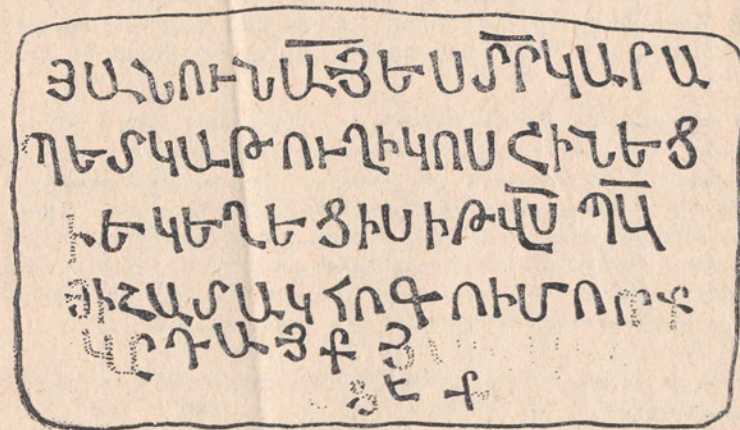 ՅԱՆՈՒՆԱՅԵՍՏՐԿԱՐԱ
ՊԵՏԿԱԹՈՒՂԻԿՈՍՇԻՆԵՑ
ԻԵԿԵՂԵՑԻՍԻԹՎՍ ՊԱ
ՅԻՇԱՏԱԿՀՈԳՈՒՄՈՐՔ
ԿԸԴԱՅՔ Յ
ՅԷՔ